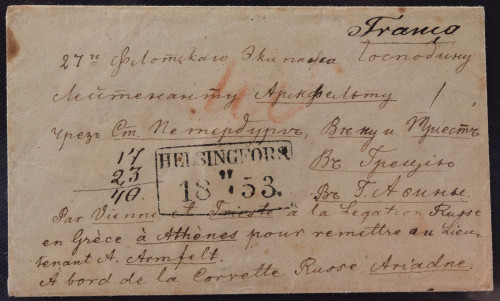 Franco
27го Флотскаго Экипажа Господину
Лейтенанту Армфельту
Чрезъ Ст. Петербургъ, Вѣну и Тріестъ
17 Въ Грецію
23 Въ Г. Аѳины.
40.
HELSINGFORS
18 53.
Par Vienne & Trieste à la Legation Russe
en Grèce à Athènes pour remettre au Lieu-
tenant A. Armfelt.
A bord de la Corvette Russe Ariadne.